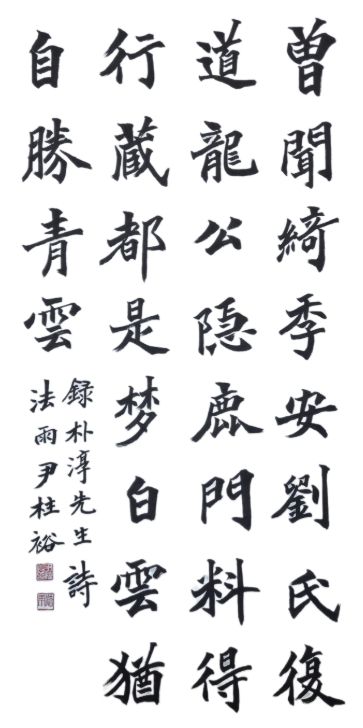 曾聞綺季安劉氏復
道龍公隐鹿門料得
行蔵都是梦白雲猶
自勝青雲
録朴淳先生詩
法雨尹柱裕